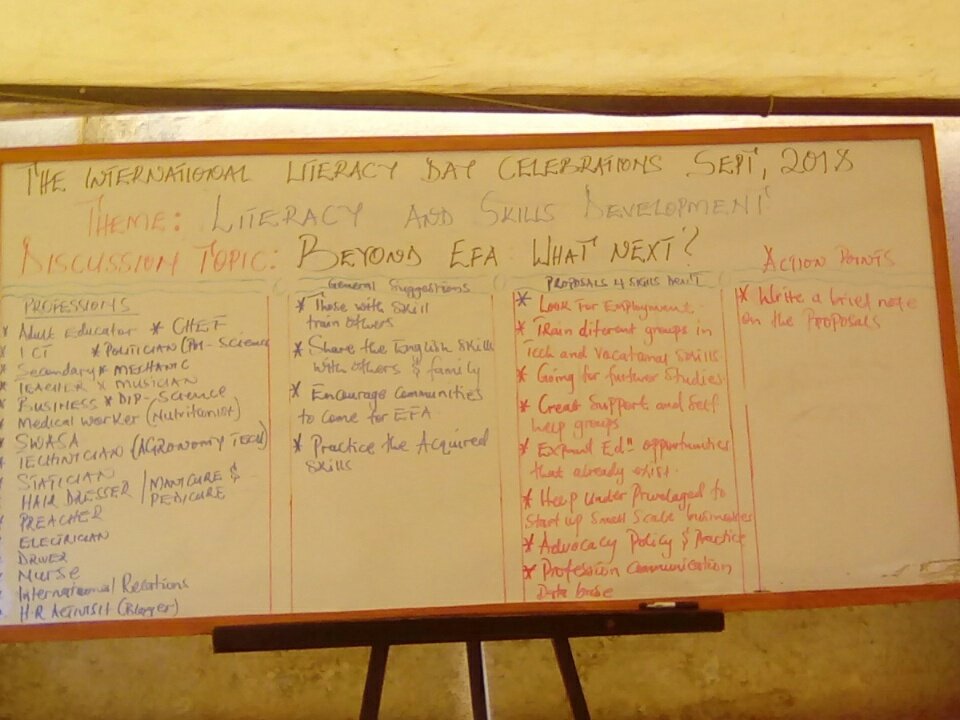 THE INTERNATIONAL LITERACY DAY CELEBRATIONS SEPT, 2018
THEME: LITERACY AND SKILLS DEVELOPMENT
DISCUSSION TOPIC: BEYOND EFA WHAT NEXT?
PROFESSIONS
* Adult Educator * CHEF
* ICT * POLITICIAN (Pol-Science
* Secondary * MECHANIC
* TEACHER * MUSICIAN
* BUSINESS * DIP-Science
* Medical Worker (Nutritionist)
* SWASA
* TECHNICIAN (AGRONOMY TECH)
* STATICIAN
* HAIR DRESSER / MANICURE &
PEDICURE
* PREACHER
* ELECTRICIAN
* DRIVER
* Nurse
* International Relations
* H.R ACTIVISIT (Blogger)
General Suggestions
* Those with skill
train others
* Share the English skill
with others & family
* Encourage communities
to come for EFA
* Practice the Acquired
skills
PROPOSALS 4 SKILLS
* Look for Employment.
* Train diferent groups in
Tech and vacational skills.
* Going for further Studies
* Creat Support and Self
help groups
* Expand Edn opportunities
that already exist.
* Help under Privelaged to
start up Small Scale businesses
* Advocacy Policy & Practice
* Profession Communication
Data base
ACTION POINTS
* Write a brief note
on the Proposals